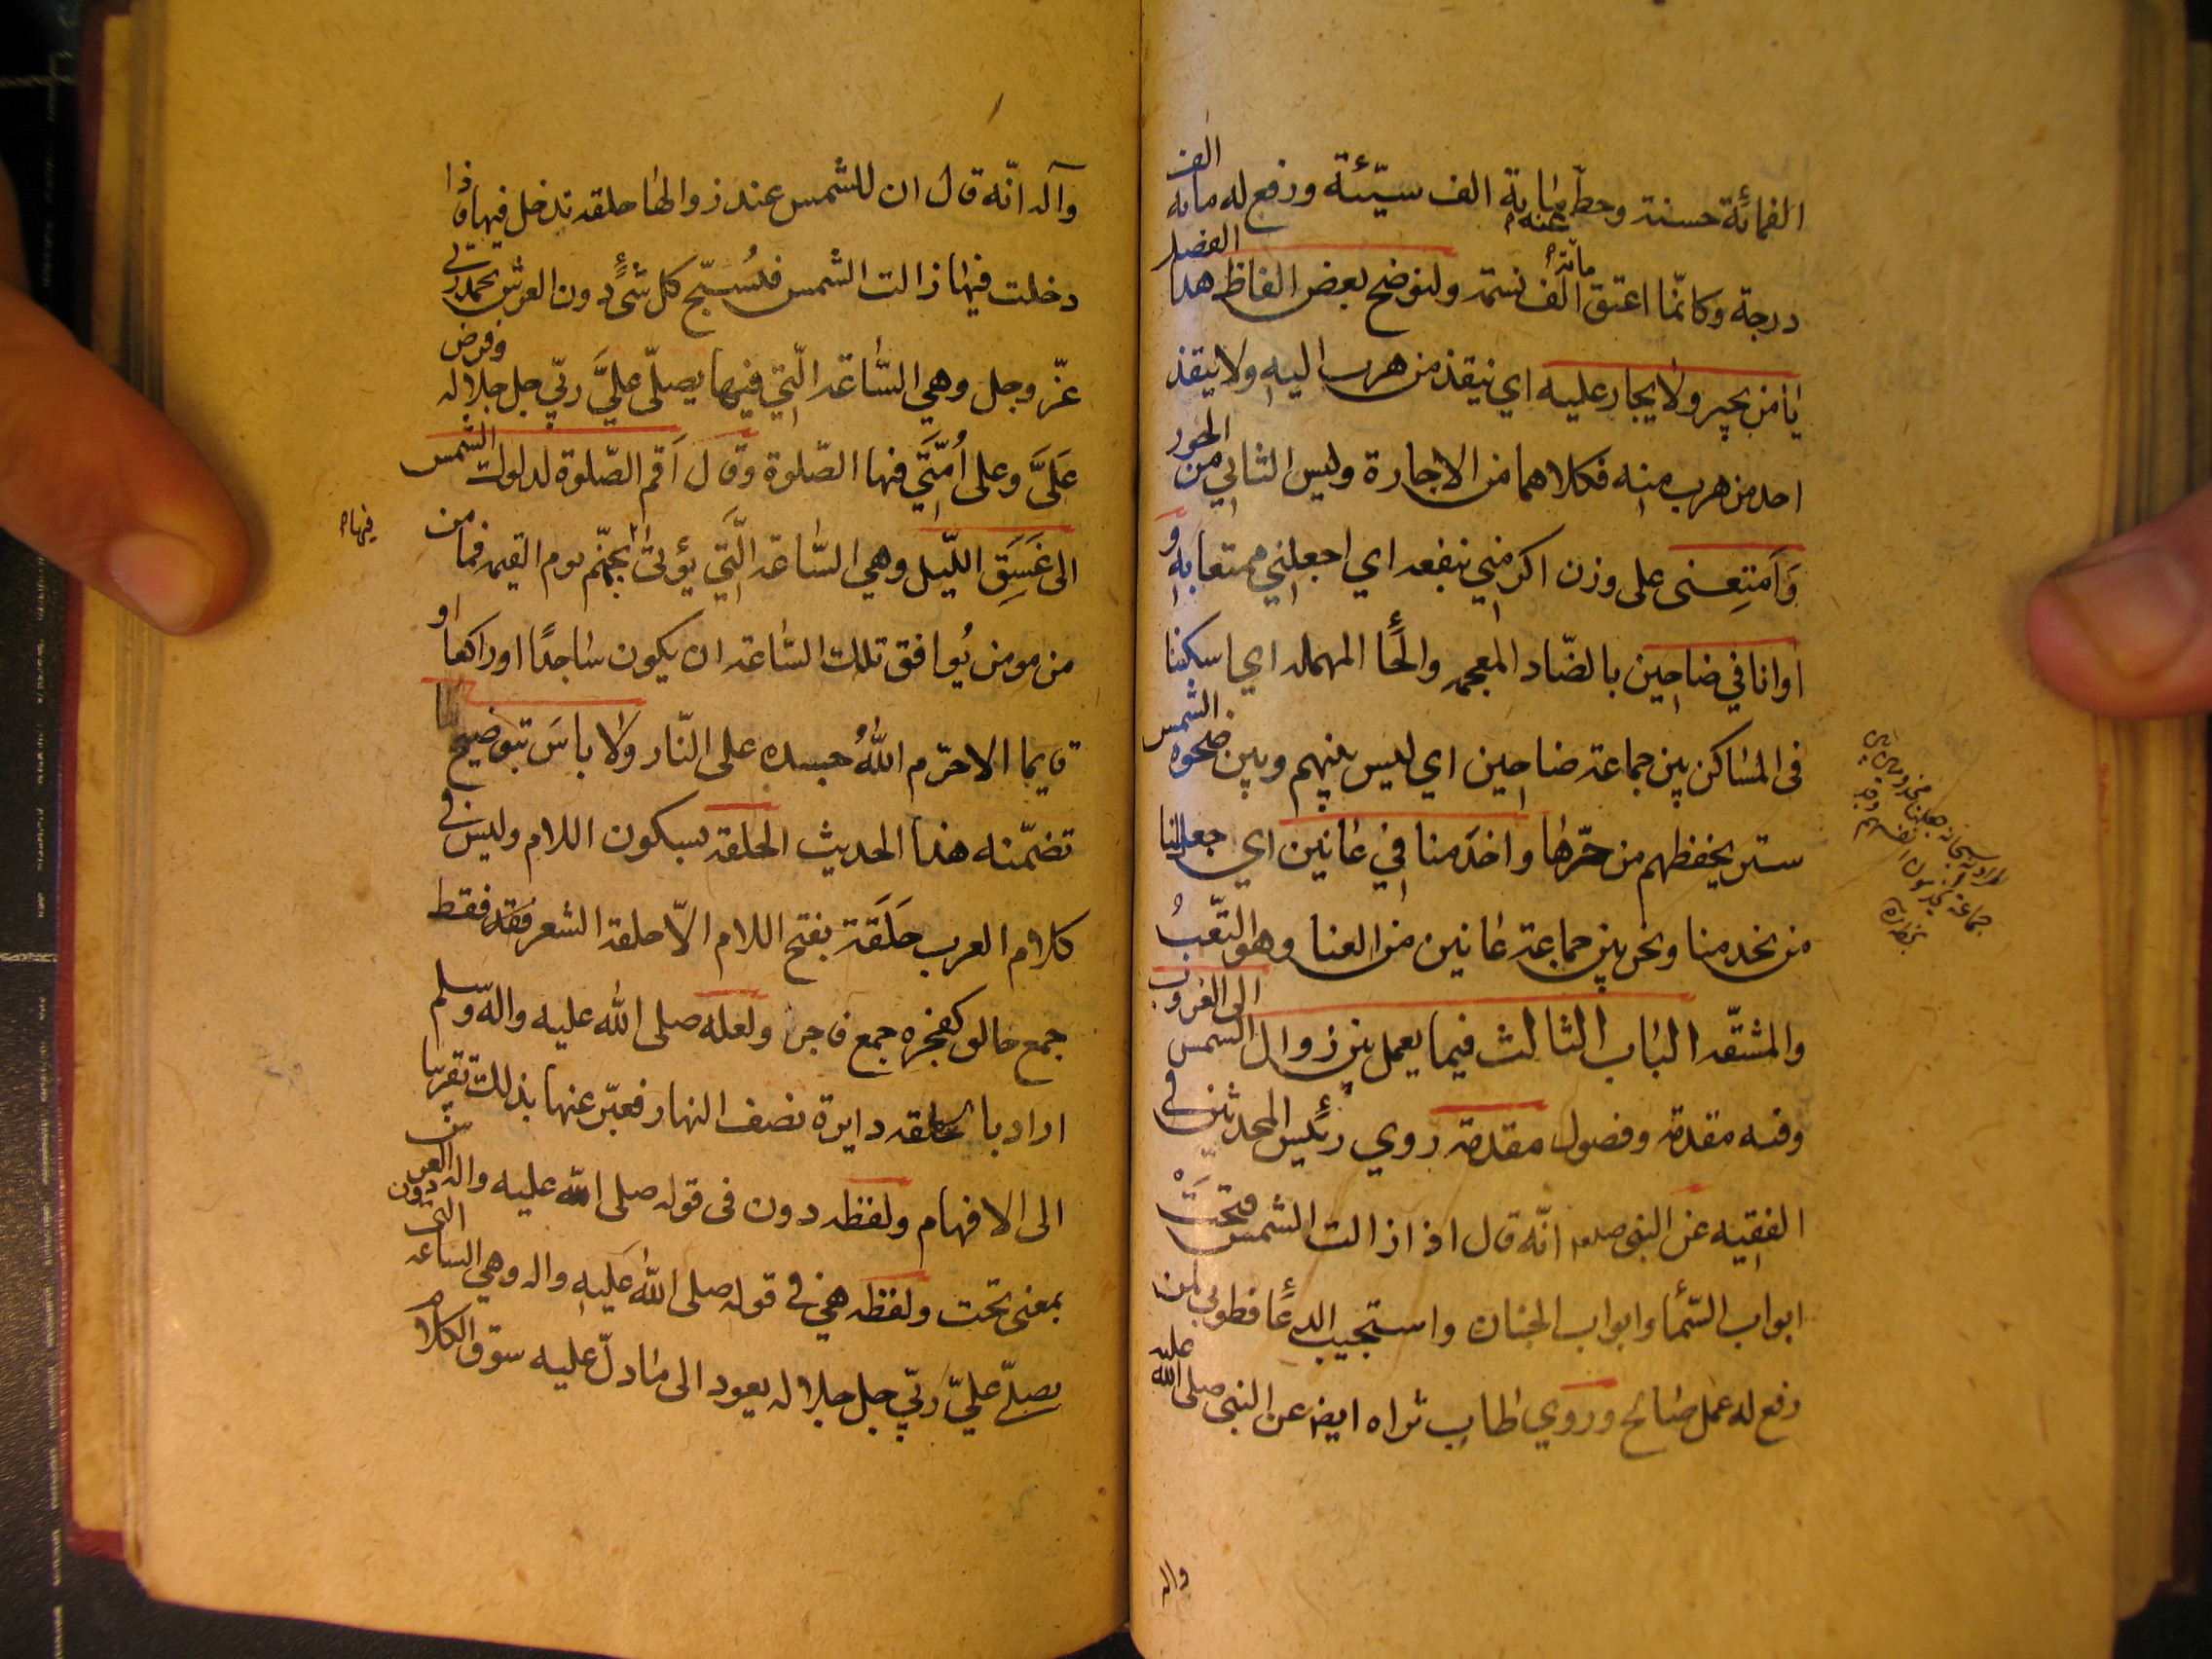 الفمائة حسنة وحطّ عنه ماية الف سيّئة ورفع له مائه الف
درجة وكانّما اعتق مائة الف نسمة ولنوضح بعض الفاظ هذا الفصل
يا من يجير ولا يجار عليه اي ينقذ من هرب اليه ولا ينقذ
احد من هرب منه فكلاهما من الاجارة وليس الثاني من الجور
وَاَمتِعنى على وزن اكرمني بنفعه اي اجعلني ممتعا به و
اوانا في ضاحين بالضّاد المعجمه والحاء المهمله اي اسكننا
فى المساكن بين جماعة ضاحين اي ليس بينهم وبين ضحوه الشمس
ستر يحفظهم من حرّها واخدَمنا في عانين اي جعل لنا
من يخدمنا ونحن بين جماعة عانين من العنا وهو التّعبُ
والمشقّه الباب الثالث فيما يعمل بين زوال الشمس الى الغروب
وفيه مقدمة وفصول مقدمة روي رئيس المحدثين في
الفقيه عن النبى صلعم انّه قال اذا زالت الشمس فتحَتْ
ابواب السّمأ وابواب الجنان واستجيب الدعأ فطوبي لمن
رفع له عمل صالح وروي طاب ثراه ايضا عن النبى صلى الله عليه
واله
وآله انّه قال ان للشمس عند زوالها حلقه تدخل فيها فاذا
دخلت فيها زالت الشمس فيُسبّح كل شئ دون العرش بحمد ربي
عزّ وجل وهي السّاعه الّتي فيها يصلّى عليَّ ربّي جل جلاله وفرض
عَلَىَّ وعلى اُمّتي فيها الصّلوة وقال اَقم الصّلوة لدلوك الشمس
الى غَسَقِ اللّيل وهي السّاعه الّتَي يؤتى بجهنّم يوم القيمه فما من
فيها
من مومن يُوافق تلك السّاعه ان يكون ساجدًا او راكعا او
قايما الا حرّم اللهُ جسده على النّار ولا باسَ بتوضيح
تضمّنه هذا الحديث الحلقه بسكون اللام وليس في
كلام العرب حَلَقة بفتح اللام الاّ حلقه الشعر فقط
جمع حالق كفجره جمع فاجر ولعله صلى الله عليه واله وسلم
اراد بالحلقه دايرة نصف النهار فعبّر عنها بذلك تقريبا
الى الافهام ولفظه دون فى قوله صلى الله عليه واله دون العرش
بمعنى تحت ولفظه هي في قوله صلى الله عليه واله وهي الساعه التى
يصلّي عليّ ربّي جل جلاله يعود الى ما دلّ عليه سوق الكلام